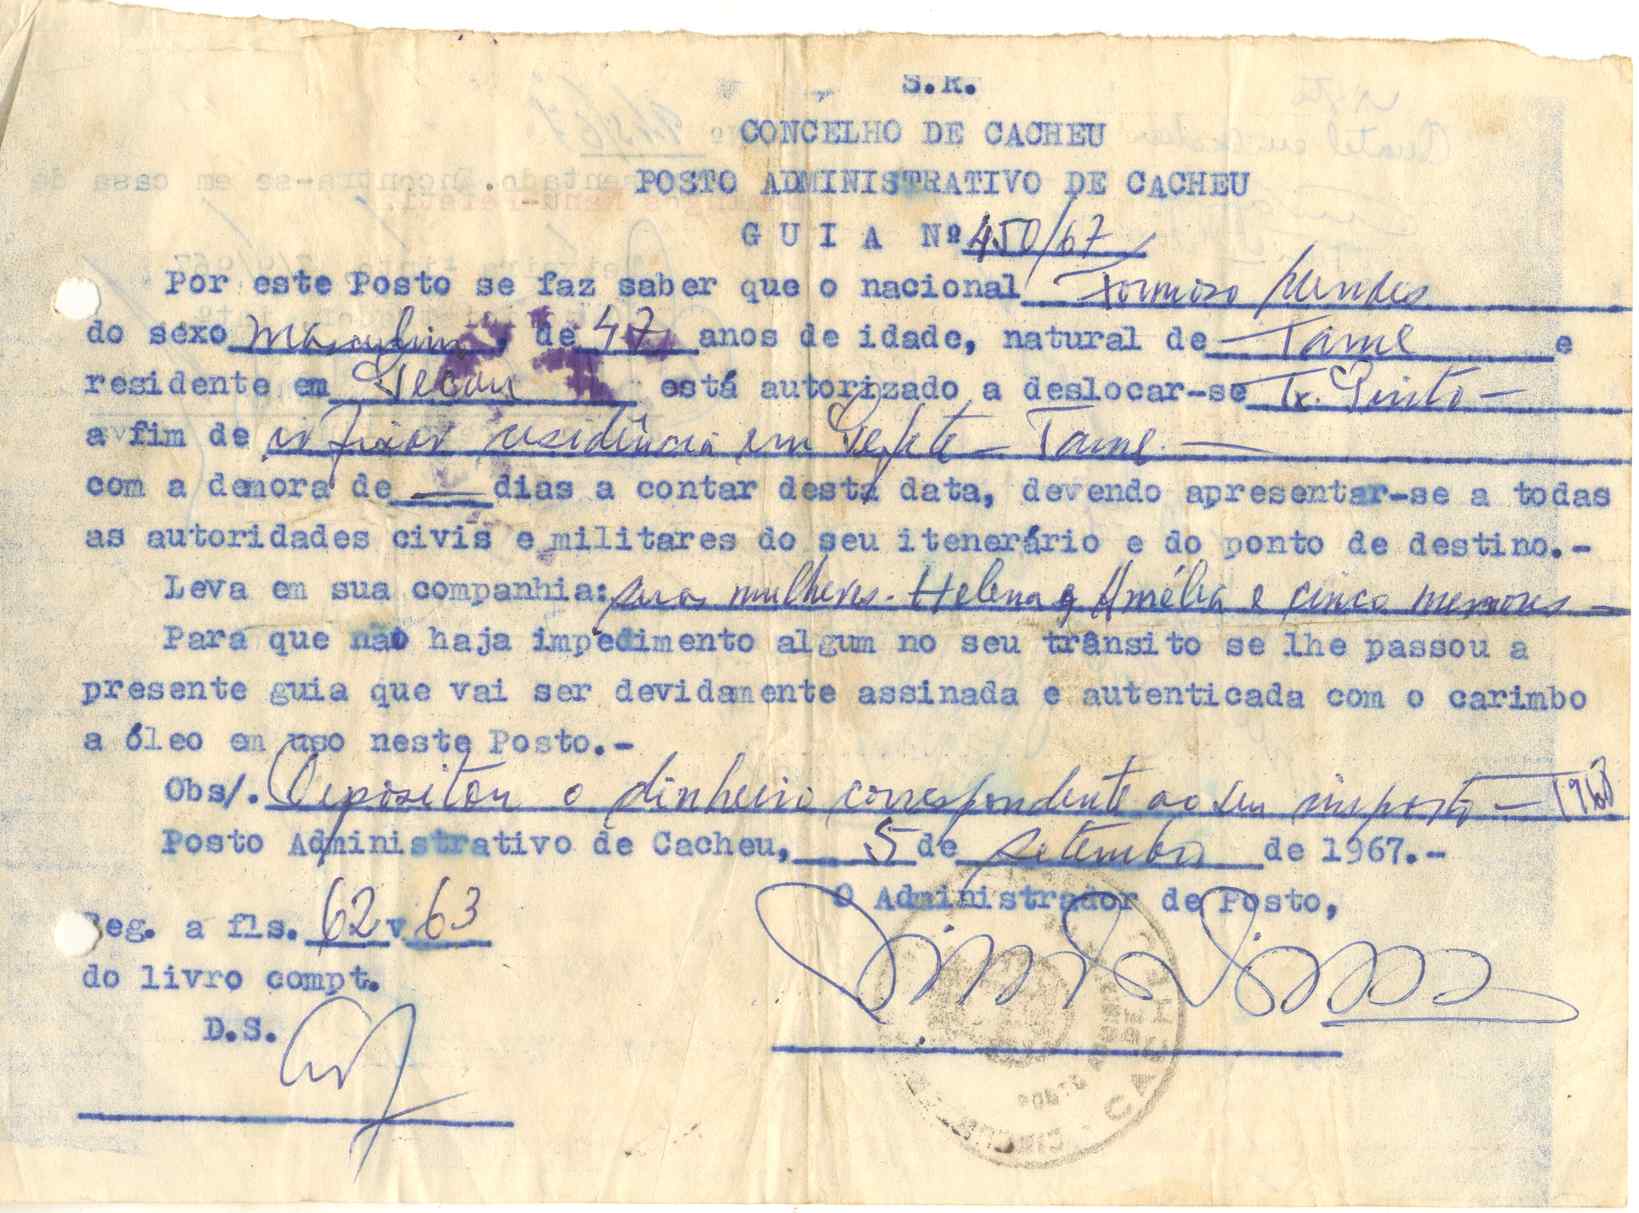 S.R.
CONCELHO DE CACHEU
POSTO ADMINISTRATIVO DE CACHEU
G U I A Nº 450/67
Por este Posto se faz saber que o nacional Formoso Mendes
do sexo Masculino, de 47 anos de idade, natural de Tame e
residente em Pecau está autorizado a deslocar-se Tx. Pinto -
a fim de ir fixar residência em Pefete - Tame. -
com a demora de — dias a contar desta data, devendo apresentar-se a todas
as autoridades civis e militares do seu itenerário e do ponto de destino.-
Leva em sua companhia: suas mulheres. Helena e Amélia e cinco menores -
Para que não haja impedimento algum no seu trânsito se lhe passou a
presente guia que vai ser devidamente assinada e autenticada com o carimbo
a óleo em uso neste Posto.-
Obs/. Depositou o dinheiro correspondente ao seu imposto - 1968
Posto Administrativo de Cacheu, 5 de setembro de 1967.-
O Administrador de Posto,
Reg. a fls. 62 v 63
do livro compt.
D.S.
CACHEU